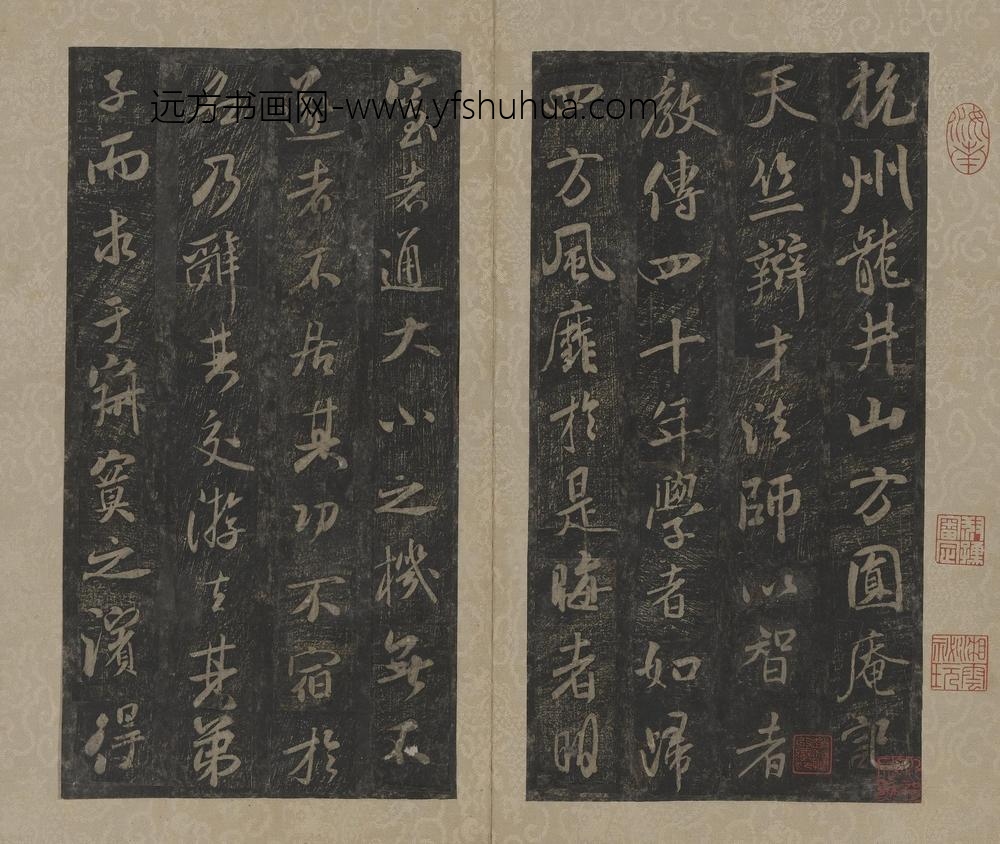 杭州龍井山方圓庵記
天竺辯才法師以智者
教傳四十年學者如歸
四方風靡於是晦者明
窒者通大小之機無不
遂者不居其功不宿於
名乃辭其交游去其弟
子而求于寂寞之濱得
远方书画网-www.yfshuhua.com